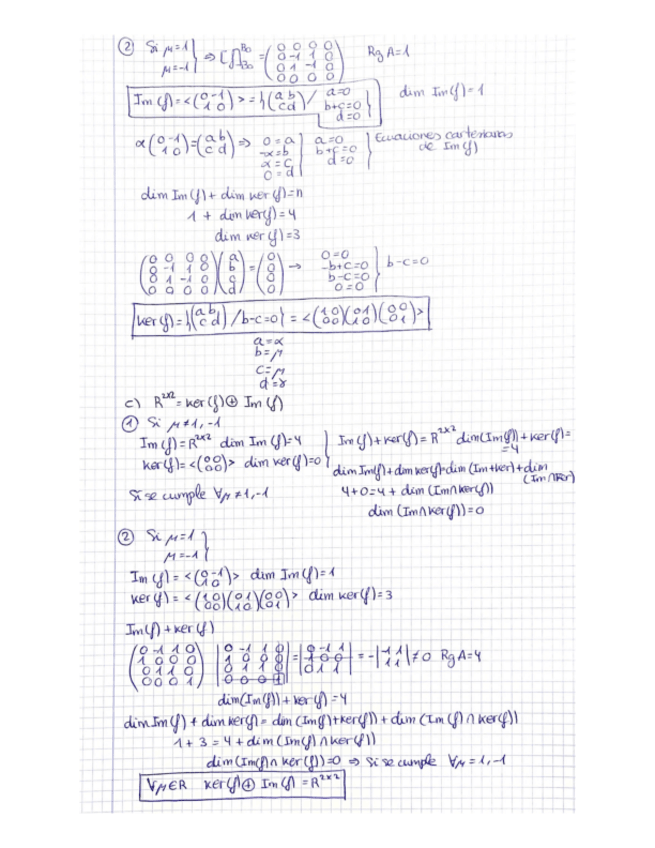 ② Si μ=1 } μ=-1 } ⇒ [f]_{B0}^{B0} = (0 0 0 0 / 0 -1 1 0 / 0 1 -1 0 / 0 0 0 0) Rg A=1
Im(f)=<(0 -1 / 1 0)>={(a b / c d)/ a=0 b+c=0 d=0} dim Im(f)=1
α(0 -1 / 1 0)=(a b / c d)⇒ 0=a -α=b α=c 0=d } a=0 b+c=0 d=0 } Ecuaciones cartesianas de Im(f)
dim Im(f)+dim ker(f)=n
1 + dim ker(f)=4
dim ker(f)=3
(0 0 0 0 / 0 -1 1 0 / 0 1 -1 0 / 0 0 0 0)(a / b / c / d)=(0 / 0 / 0 / 0) → 0=0 -b+c=0 b-c=0 0=0 } b-c=0
ker(f)={(a b / c d)/b-c=0}=<(1 0 / 0 0)(0 1 / 1 0)(0 0 / 0 1)>
a=α
b=μ
c=μ
d=γ
c) R^{2x2}=ker(f)⊕Im(f)
① Si μ≠1,-1
Im(f)=R^{2x2} dim Im(f)=4 } Im(f)+ker(f)=R^{2x2} dim(Im(f))+ker(f)=
=4
ker(f)=<(0 0 / 0 0)> dim ker(f)=0 } dim Im(f)+dim ker(f)=dim(Im+ker)+dim
(Im∩ker)
Si se cumple ∀μ≠1,-1 4+0=4+dim(Im∩ker(f))
dim(Im∩ker(f))=0
② Si μ=1 }
μ=-1 }
Im(f)=<(0 -1 / 1 0)> dim Im(f)=1
ker(f)=<(1 0 / 0 0)(0 1 / 1 0)(0 0 / 0 1)> dim ker(f)=3
Im(f)+ker(f)
(0 -1 1 0 / 1 0 0 0 / 0 1 1 0 / 0 0 0 1) |0 -1 1 0 / 1 0 0 0 / 0 1 1 0 / 0 0 0 1|=|0 -1 1 / 1 0 0 / 0 1 1|=-|-1 1 / 1 1|≠0 Rg A=4
dim(Im(f))+ker(f)=4
dim Im(f)+dim ker(f)=dim(Im(f)+ker(f))+dim(Im(f)∩ker(f))
1+3=4+dim(Im(f)∩ker(f))
dim(Im(f)∩ker(f))=0 ⇒ Si se cumple ∀μ=1,-1
∀μ∈R ker(f)⊕Im(f)=R^{2x2}